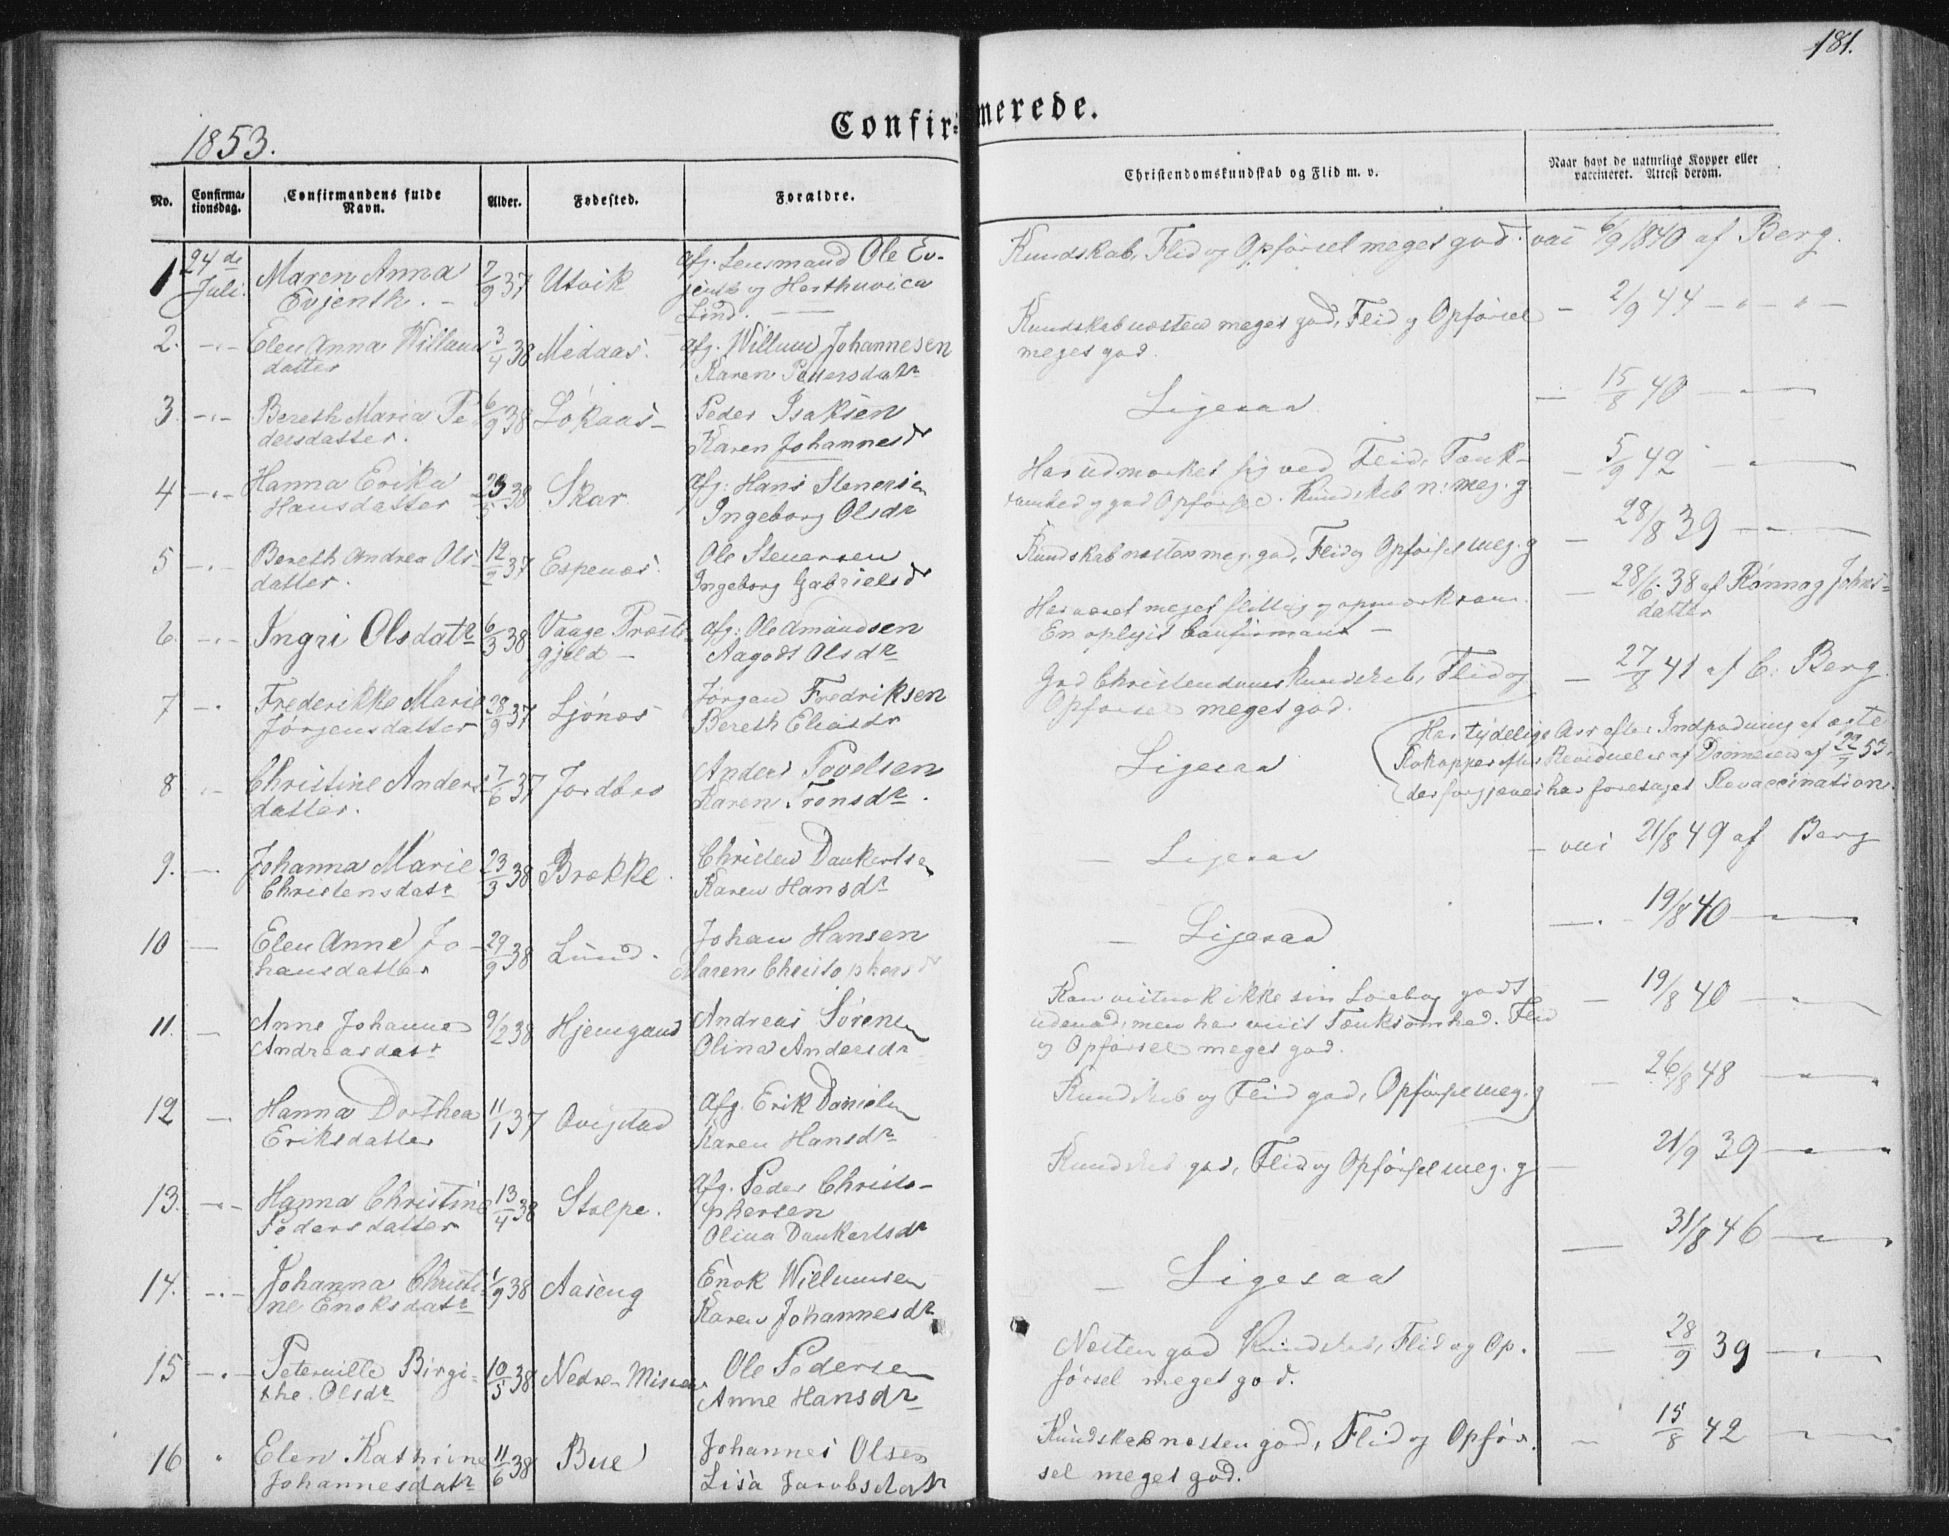 181.
Confirmerede.
1853.
No.
Confirmationsdag.
Confirmandens fulde Navn.
Alder.
Fødested.
Forældre.
Christendomskundskab og Flid m. v.
Naar havt de naturlige Kopper eller vaccineret. Attest derom.
1 24de Maren Anna 7/9 37 Utvik afg. Lensmand Ole Ev-
Juli. Evjenth. jenth og Harthuvica
Lind.
Kundskab, Flid og Opførsel meget god. vac 6/9 1840 af Berg.
2. Elen Anna Willums 3/4 38 Medaas. afg. Willum Johannesen
datter Karen Pedersdatr
Kundskab næsten meget god, Flid og Opførsel 2/9 44
meget god.
3. Bereth Maria Pe 6/9 38 Løkaas Peder Isaksen
dersdatter. Karen Johannesdr
Ligesaa 15/8 40
4 Hanna Erika 38 Skar afg: Hans Stenersen
Hansdatter Ingeborg Olsdr
Har udmærket sig ved Flid, Tænk- 5/9 42
somhed og god Opførsel. Kundskab n: meg. g
5 Bereth Andrea Ols 37 Espenæs. Ole Stenersen
datter. Ingeborg Gabrielsdr
Kundskab næsten meg. god, Flid og Opførsel meg. g 28/8 39
6. Ingri Olsdatr 6/3 38 Vaage Præste afg: Ole Amundsen
gjeld Aagodt Olsdr
Har været meget flittig og opmærksom. 28/6. 38 af Rønnog Johns-
En oplyst Confirmant datter
7 Frederikke Marie 28/9 37 Ljønæs Jørgen Fredriksen
Jørgensdatter Bereth Eliasdr
God Christendoms Kundskab, Flid og 27/8 41 af C. Berg.
Opførsel meget god.
8 Christine Anders 7/6 37 Jordbro Anders Povelsen
datter. Karen Tronsdr.
Ligesaa
Har tydelige Arr efter Indpodning af ægte
Kokopper efter af 22/7 53.
der forgjæves har foretaget Revaccination.
9. Johanna Marie 23/3 38 Brække. Christen Dankertsen
Christensdatr Karen Hansdr
Ligesaa vac 21/8 49 af Berg
10 Elen Anne Jo 29/9 38 Lund. Johan Hansen
hansdatter Maren Christophersdr
Ligesaa 19/8 40
11. Anne Johanne 9/2 38 Hjemgaard Andreas Sørensen
Andreasdatr Olina Andersdr
Kan vistnok ikke sin Lærebog godt 19/8 40
udenad, men har viist Tænksomhed. Flid
og Opførsel meget god.
12 Hanna Dorthea 11/1 37 Qvigstad afg. Erik Danielsen
Eriksdatter Karen Hansdr
Kundskab og Flid god, Opførsel meg. g 26/8 48
13. Hanna Christine 13/4 38 Stolpe. afg. Peder Christo-
Pedersdatter phersen
Olina Dankertsdr
Kundskab god, Flid og Opførsel meg. g 21/9 39
14. Johanna Christi 1/9 38 Aaseng Enok Willumsen
ne Enoksdatr Karen Johannesdr
Ligesaa 31/8 46
15 Peternille Birgi- 10/5 38 Nedre Misvær Ole Pedersen
the. Olsdr Anne Hansdr
Næsten god Kundskab, Flid og Op. 28/9 39
førsel meget god.
16 Elen Kathrine 11/6 38 Bue Johannes Olsen
Johannesdatr Lisa Jacobsdatr
Kundskab næsten god, Flid og Opfør. 15/8 42
sel meget god.